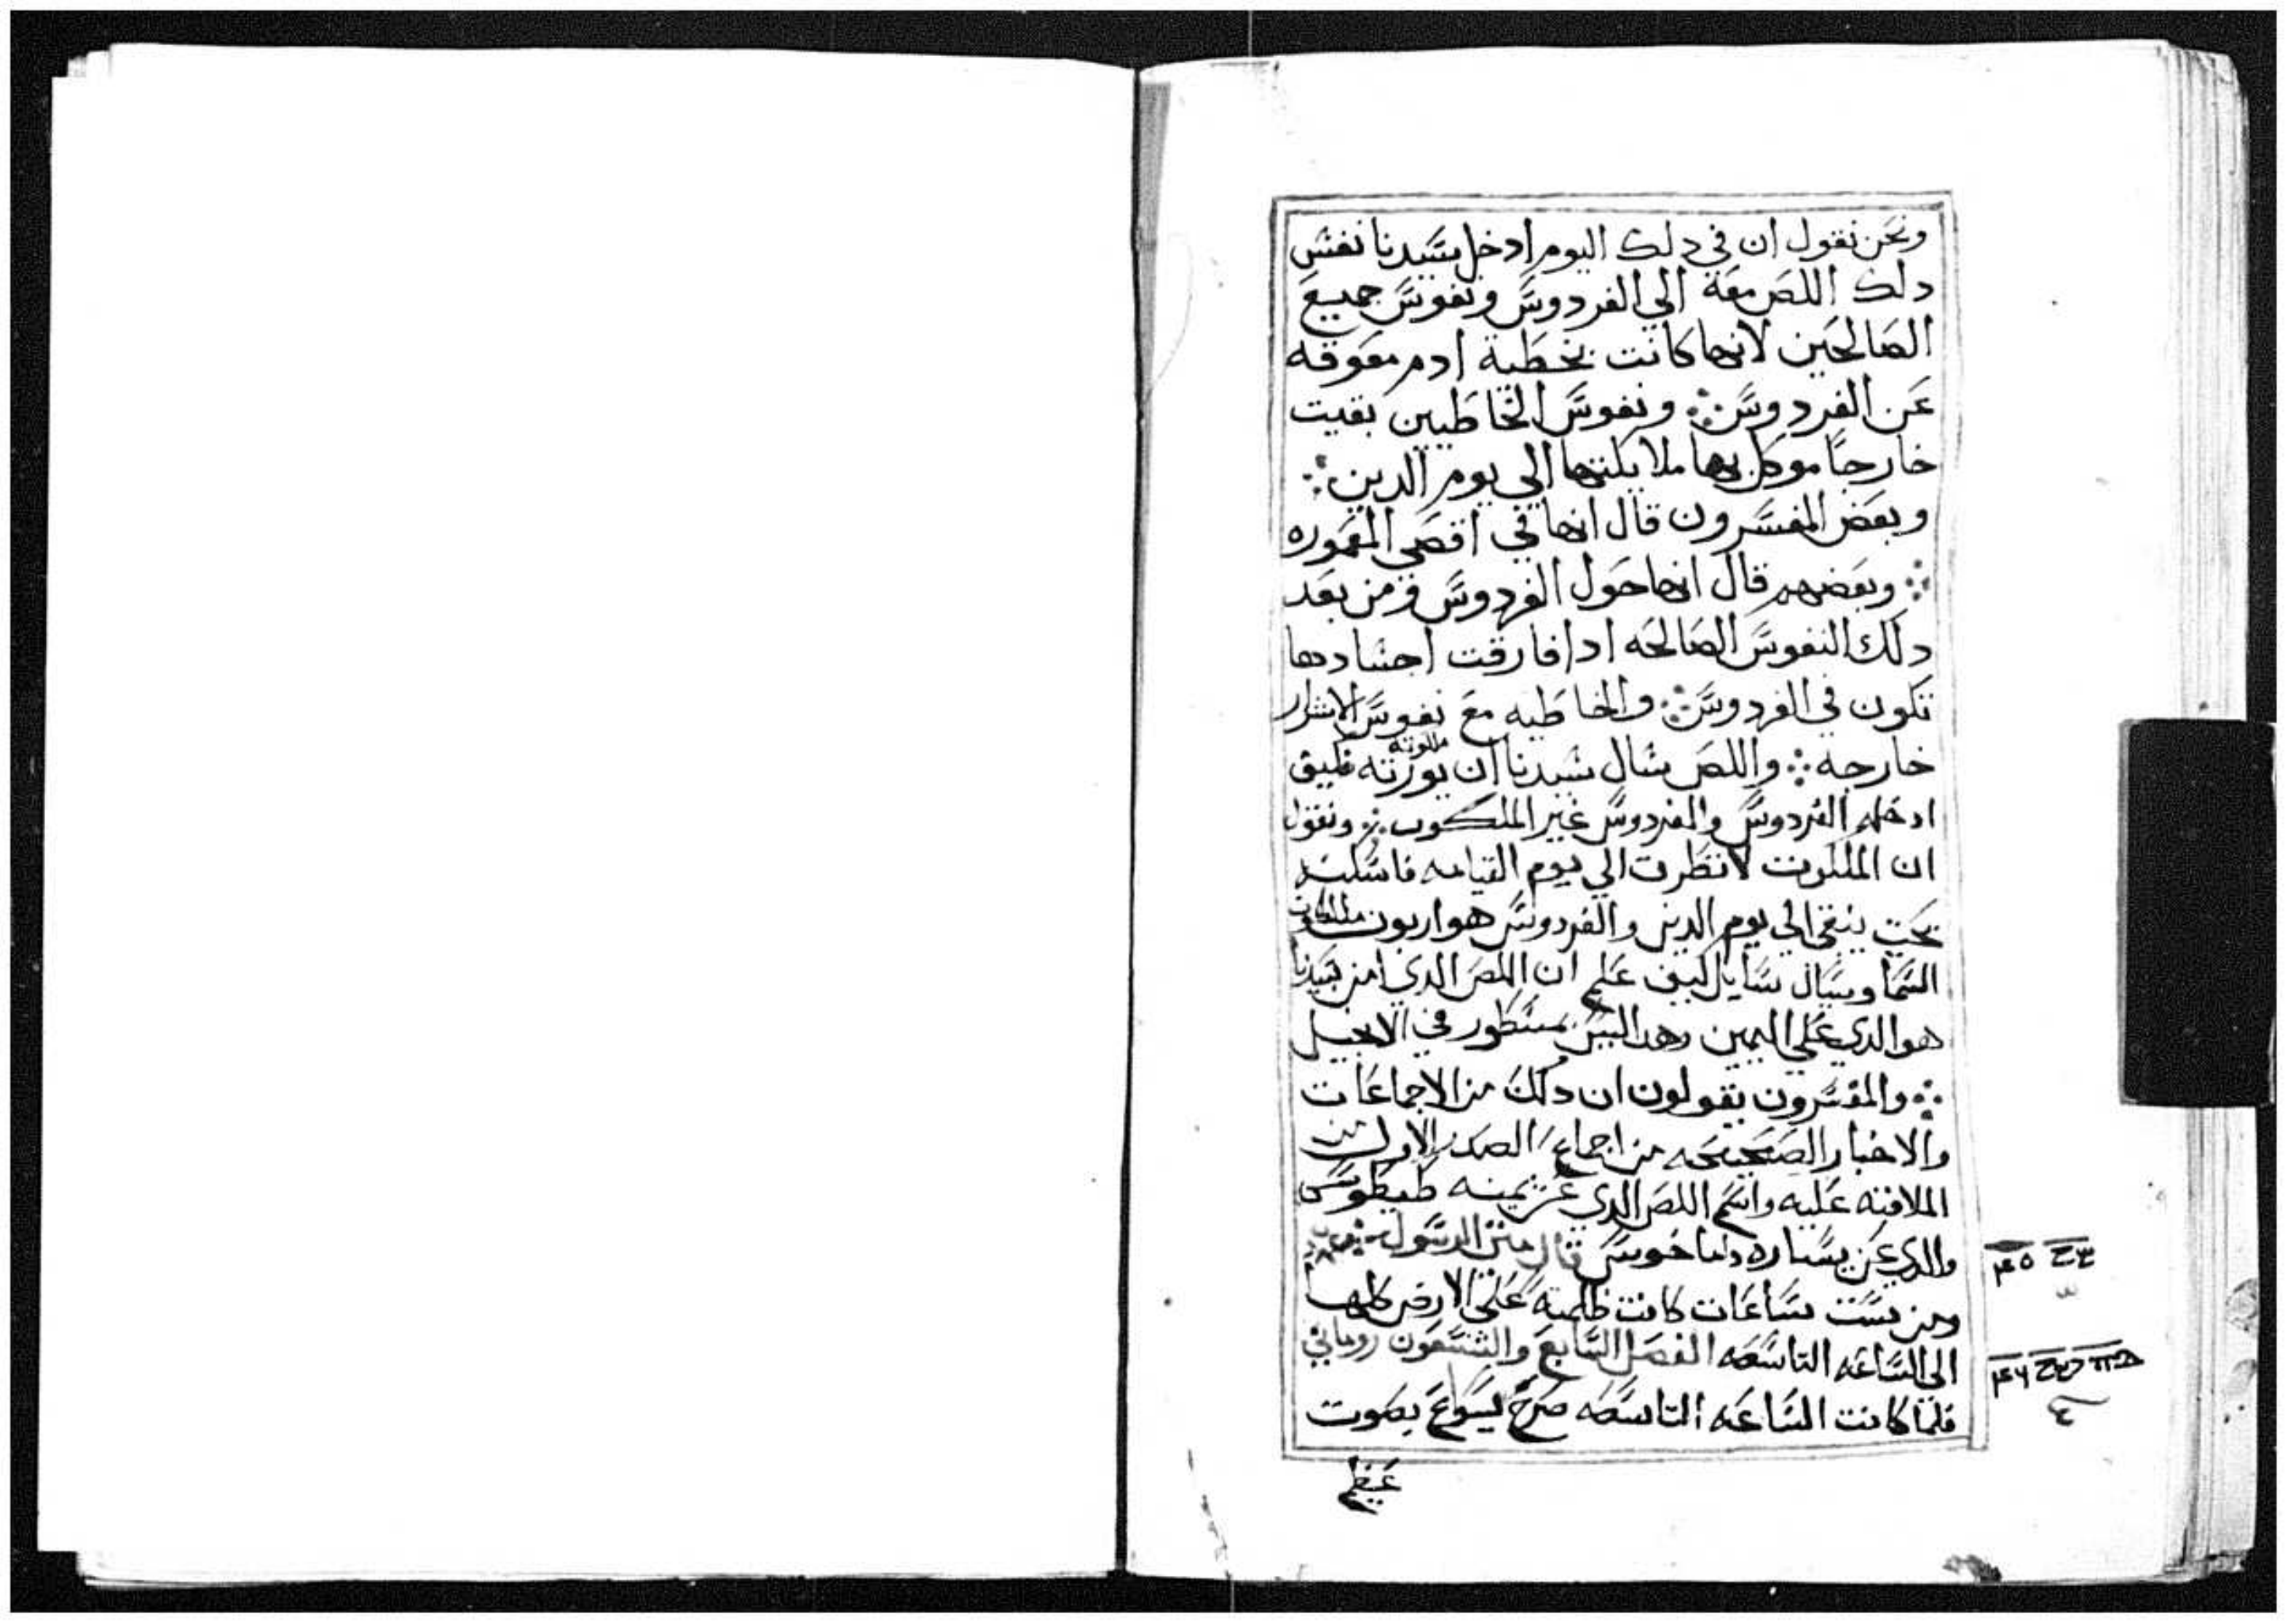 ونحن نقول ان في دلك اليوم ادخل سيدنا نفس
دلك اللص معه الي الفردوس ونفوس جميع
الصالحين لانها كانت بخطية ادم معوقه
عن الفردوس ونفوس الخاطيين بقيت
خارجا موكل بها ملايكتها الي يوم الدين
وبعض المفسرون قال انها في اقصي المعموره
وبعضهم قال انها حول الفردوس ومن بعد
دلك النفوس الصالحه ادا فارقت اجسادها
تكون في الفردوس والخاطيه مع نفوس الاشرار
خارجه واللص سال سيدنا ان يورته ملكوته فكيف
ادخله الفردوس والفردوس غير الملكوت ونقول
ان الملكوت لانظرت الي يوم القيامه
يبقي الي يوم الدين والفردوس هو اربون ملكوت
السما ويسال سايل كيف علم ان اللص الدي امن بسيدنا
هو الدي علي اليمين وهدا ليس مسطور في الانجيل
والمفسرون يقولون ان دلك من الاجماعات
والاخبار الصحيحه من اجماع الصدر الاول من
الملافنه عليه واسم اللص الدي عن يمينه طيطوس
والدي عن يساره دوماخوس قال متي الرسول
ومن ست ساعات كانت ظلمه علي الارض كلها
الي الساعه التاسعه الفصل السابع والتسعون روماني
فلما كانت الساعه التاسعه صرخ يسوع بصوت
عظيم